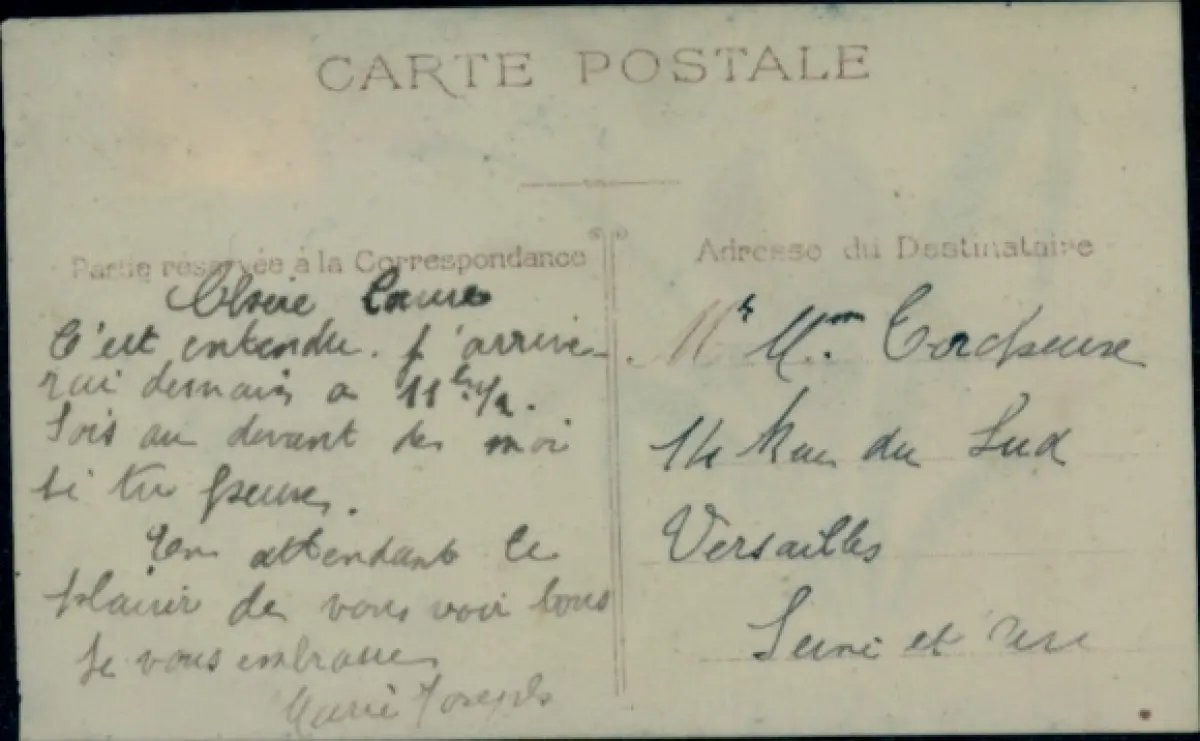 CARTE POSTALE
Partie réservée à la Correspondance
Chère
C'est entendu. j'arrive-
rai demain a 11 h 1/2.
Sois au devant de moi
si tu peux.
En attendant le
plaisir de vous voir tous
Je vous embrasse
Marie Joseph
Adresse du Destinataire
Mr Mme
14 Rue du Sud
Versailles
Seine et Oise